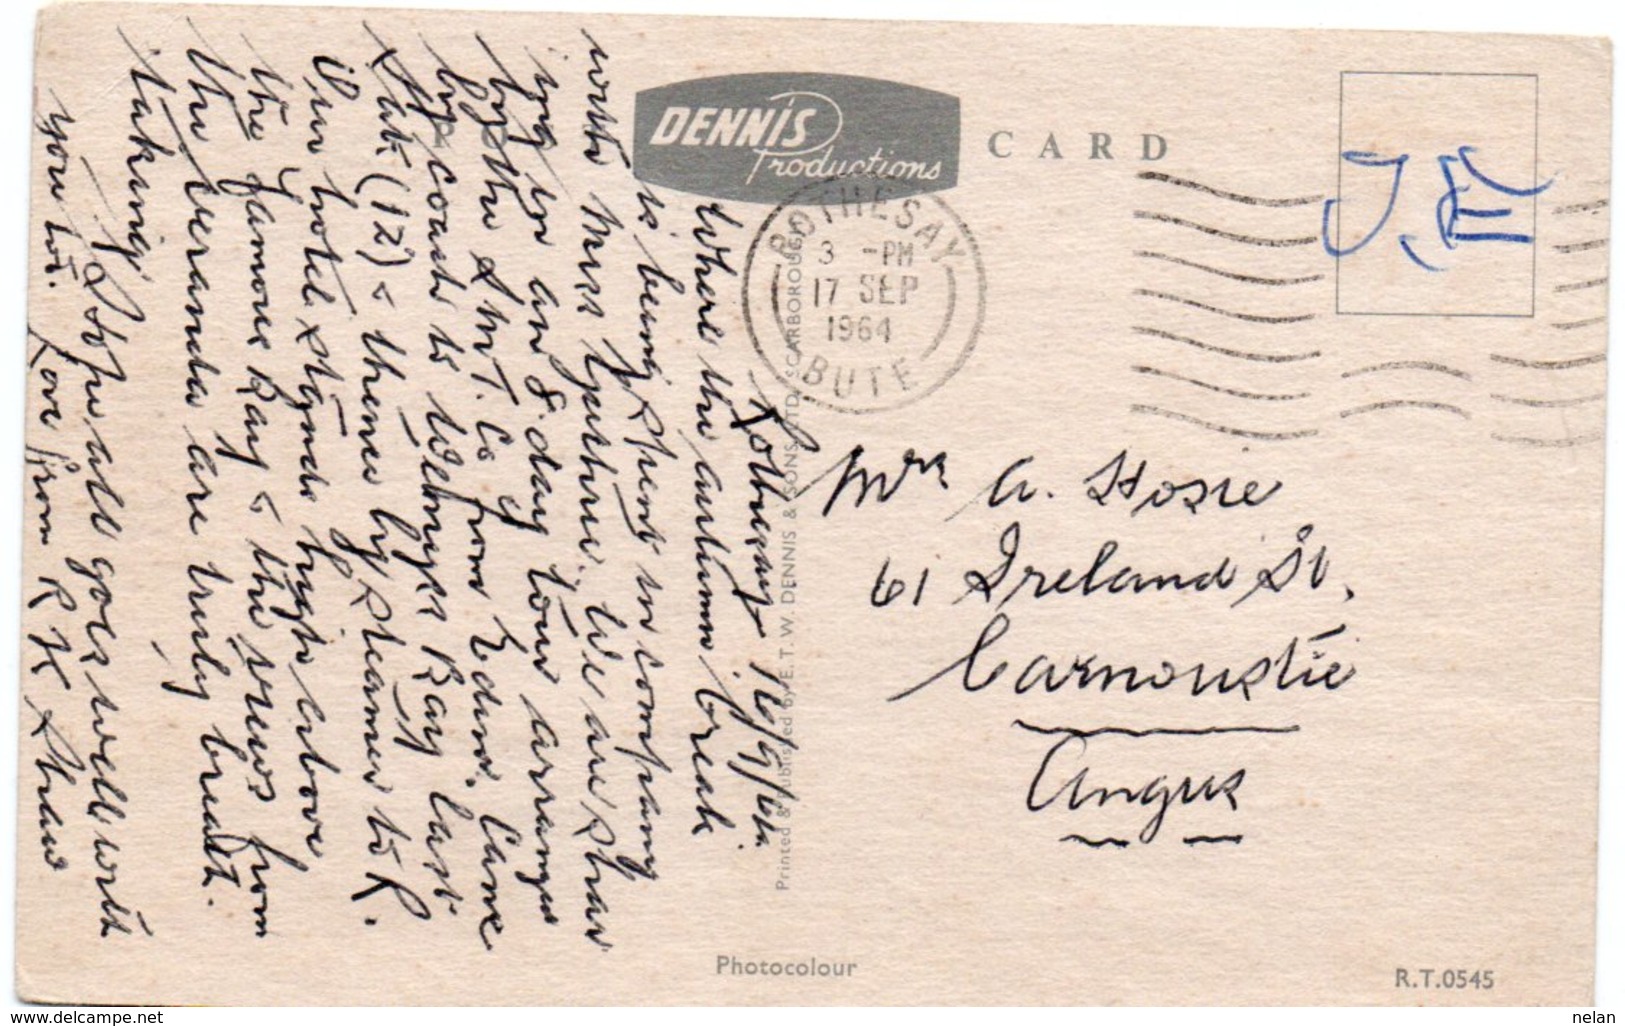 DENNIS
Productions
CARD
J.E
ROTHESAY
3 -PM
17 SEP
1964
BUTE
Rothesay 16/9/64
Where the autumn break
is being spent in company
with Miss Guthrie. We are
in an 8 day tour arranged
by the S.M.T. Co from Edin. Came
by coach to Wemyss Bay last
Sat. (12) & thence by steamer to R.
Our hotel stands high above
the famous Bay & the views from
the veranda are truly breath
taking.
Hope all goes well with
you too.
Love from R K Shaw
Mrs A. Hosie
61 Ireland St.
Carnoustie
Angus
Printed & Published by E. T. W. DENNIS & SONS LTD. SCARBOROUGH
Photocolour
R.T.0545
www.delcampe.net
nelan